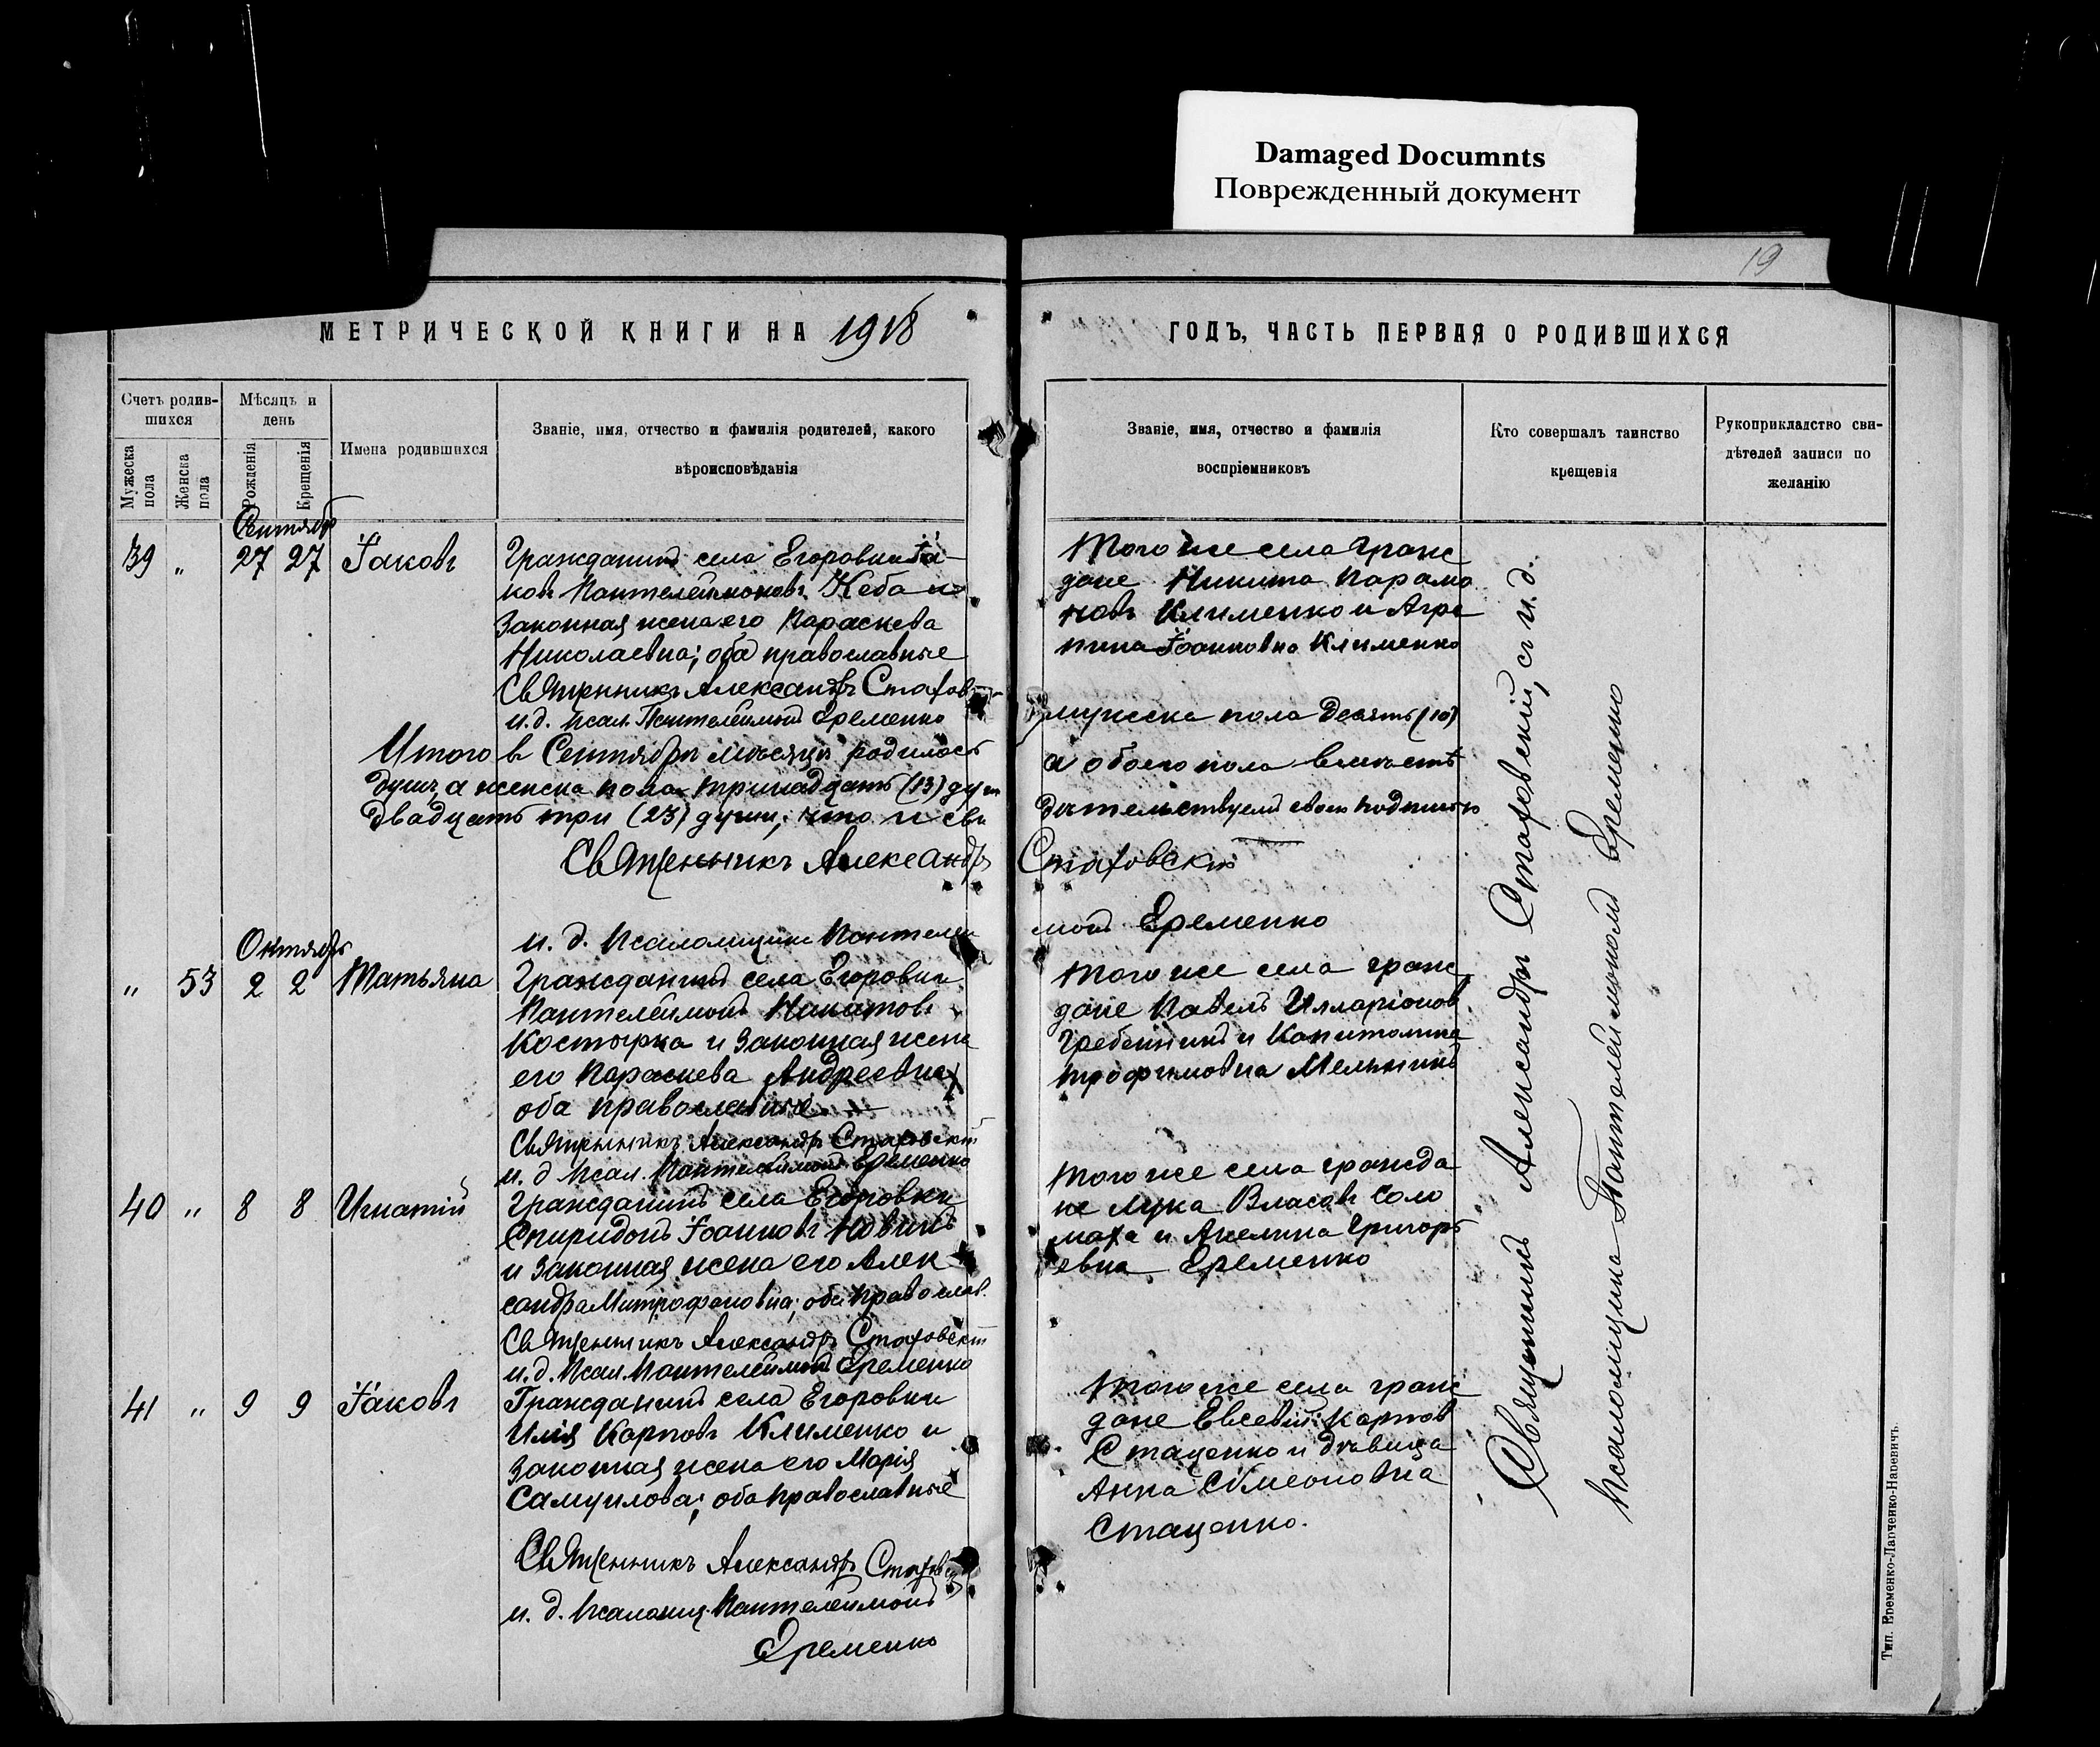 Damaged Documnts
Поврежденный документ
19
МЕТРИЧЕСКОЙ КНИГИ НА 1918
ГОДЪ, ЧАСТЬ ПЕРВАЯ О РОДИВШИХСЯ
Счетъ родив-
шихся
Мужеска пола
Женска пола
Мѣсяцъ и
день
Рожденія
Крещенія
Имена родившихся
Званіе, имя, отчество и фамилія родителей, какого
вѣроисповѣданія
Званіе, имя, отчество и фамилія
воспріемниковъ
Кто совершалъ таинство
крещенія
Рукоприкладство сви-
дѣтелей записи по
желанію
Сентябрь
39 „ 27 27 Іаковъ
Гражданинъ села Егоровки Іа-
ковъ Пантелеимоновъ Кеба и
законная жена его Параскева
Николаевна; оба православные
Священникъ Александръ Стаховскій
и. д. псал. Пантелеимонъ Еременко
Того же села граж
дане Никита Парамо
новъ Клименко и Агре
пина Іоанновна Клименко
Итого въ Сентябрѣ мѣсяцѣ родилось мужска пола десять (10)
душъ, а женска пола тринадцать (13) душъ а обоего пола вмѣстѣ
двадцать три (23) души; что и сви дѣтельствуемъ своею подписью
Священникъ Александръ Стаховскій
и. д. Псаломщика Пантелеи монъ Еременко
Октябрь
„ 53 2 2 Татьяна
Гражданинъ села Егоровки
Пантелеимонъ
Костырка и законная жена
его Параскева Андреевна,
оба православные.
Священникъ Александръ Стаховскій
и. д. псал. Пантелеимонъ Еременко
Того же села граж
дане Павелъ Илларіонов.
Гребенникъ и Капитолина
Трофимовна Мельникъ
40 „ 8 8 Игнатій
Гражданинъ села Егоровки
Спиридонъ Іоанновъ Новикъ
и законная жена его Алек
сандра Митрофановна; оба православ.
Священникъ Александръ Стаховскій
и. д. Псал. Пантелеимонъ Еременко
Того же села гражда
не Лука Власовъ Соло
маха и Акелина Григорь
евна Еременко
41 „ 9 9 Іаковъ
Гражданинъ села Егоровки
Илія Карповъ Клименко и
законная жена его Марія
Самуилова; оба православные
Священникъ Александръ Стаховскій
и. д. Псаломщ. Пантелеимонъ
Еременко
Того же села граж
дане Евсевій Карпов
Стаценко и дѣвица
Анна Сѵмеоновна
Стаценко.
Священникъ Александръ Стаховскій, съ и. д.
псаломщика Пантелеймономъ Еременко
Тип. Еременко-Лапченко-Наревичъ.